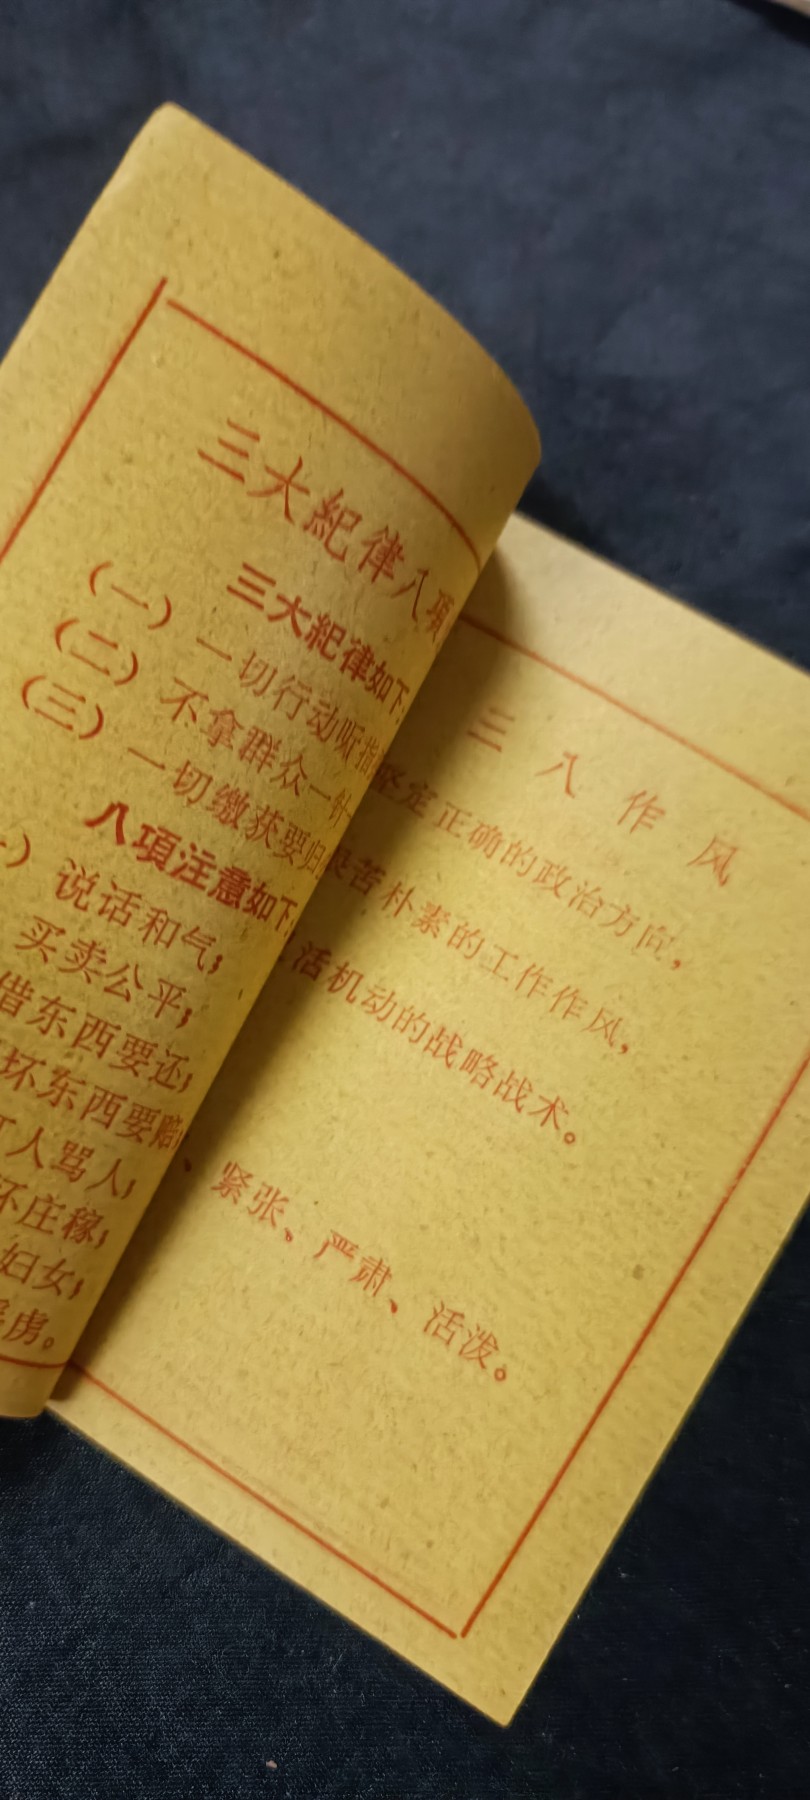 三大紀律八項
三大紀律如下:
(一) 一切行动听指
(二) 不拿群众一針
(三) 一切缴获要归
八項注意如下:
) 说话和气;
买卖公平;
借东西要还;
坏东西要賠;
人骂人;
坏庄稼;
妇女;
虏。
三八作风
坚定正确的政治方向,
艰苦朴素的工作作风,
活机动的战略战术。
、紧张、严肃、活泼。